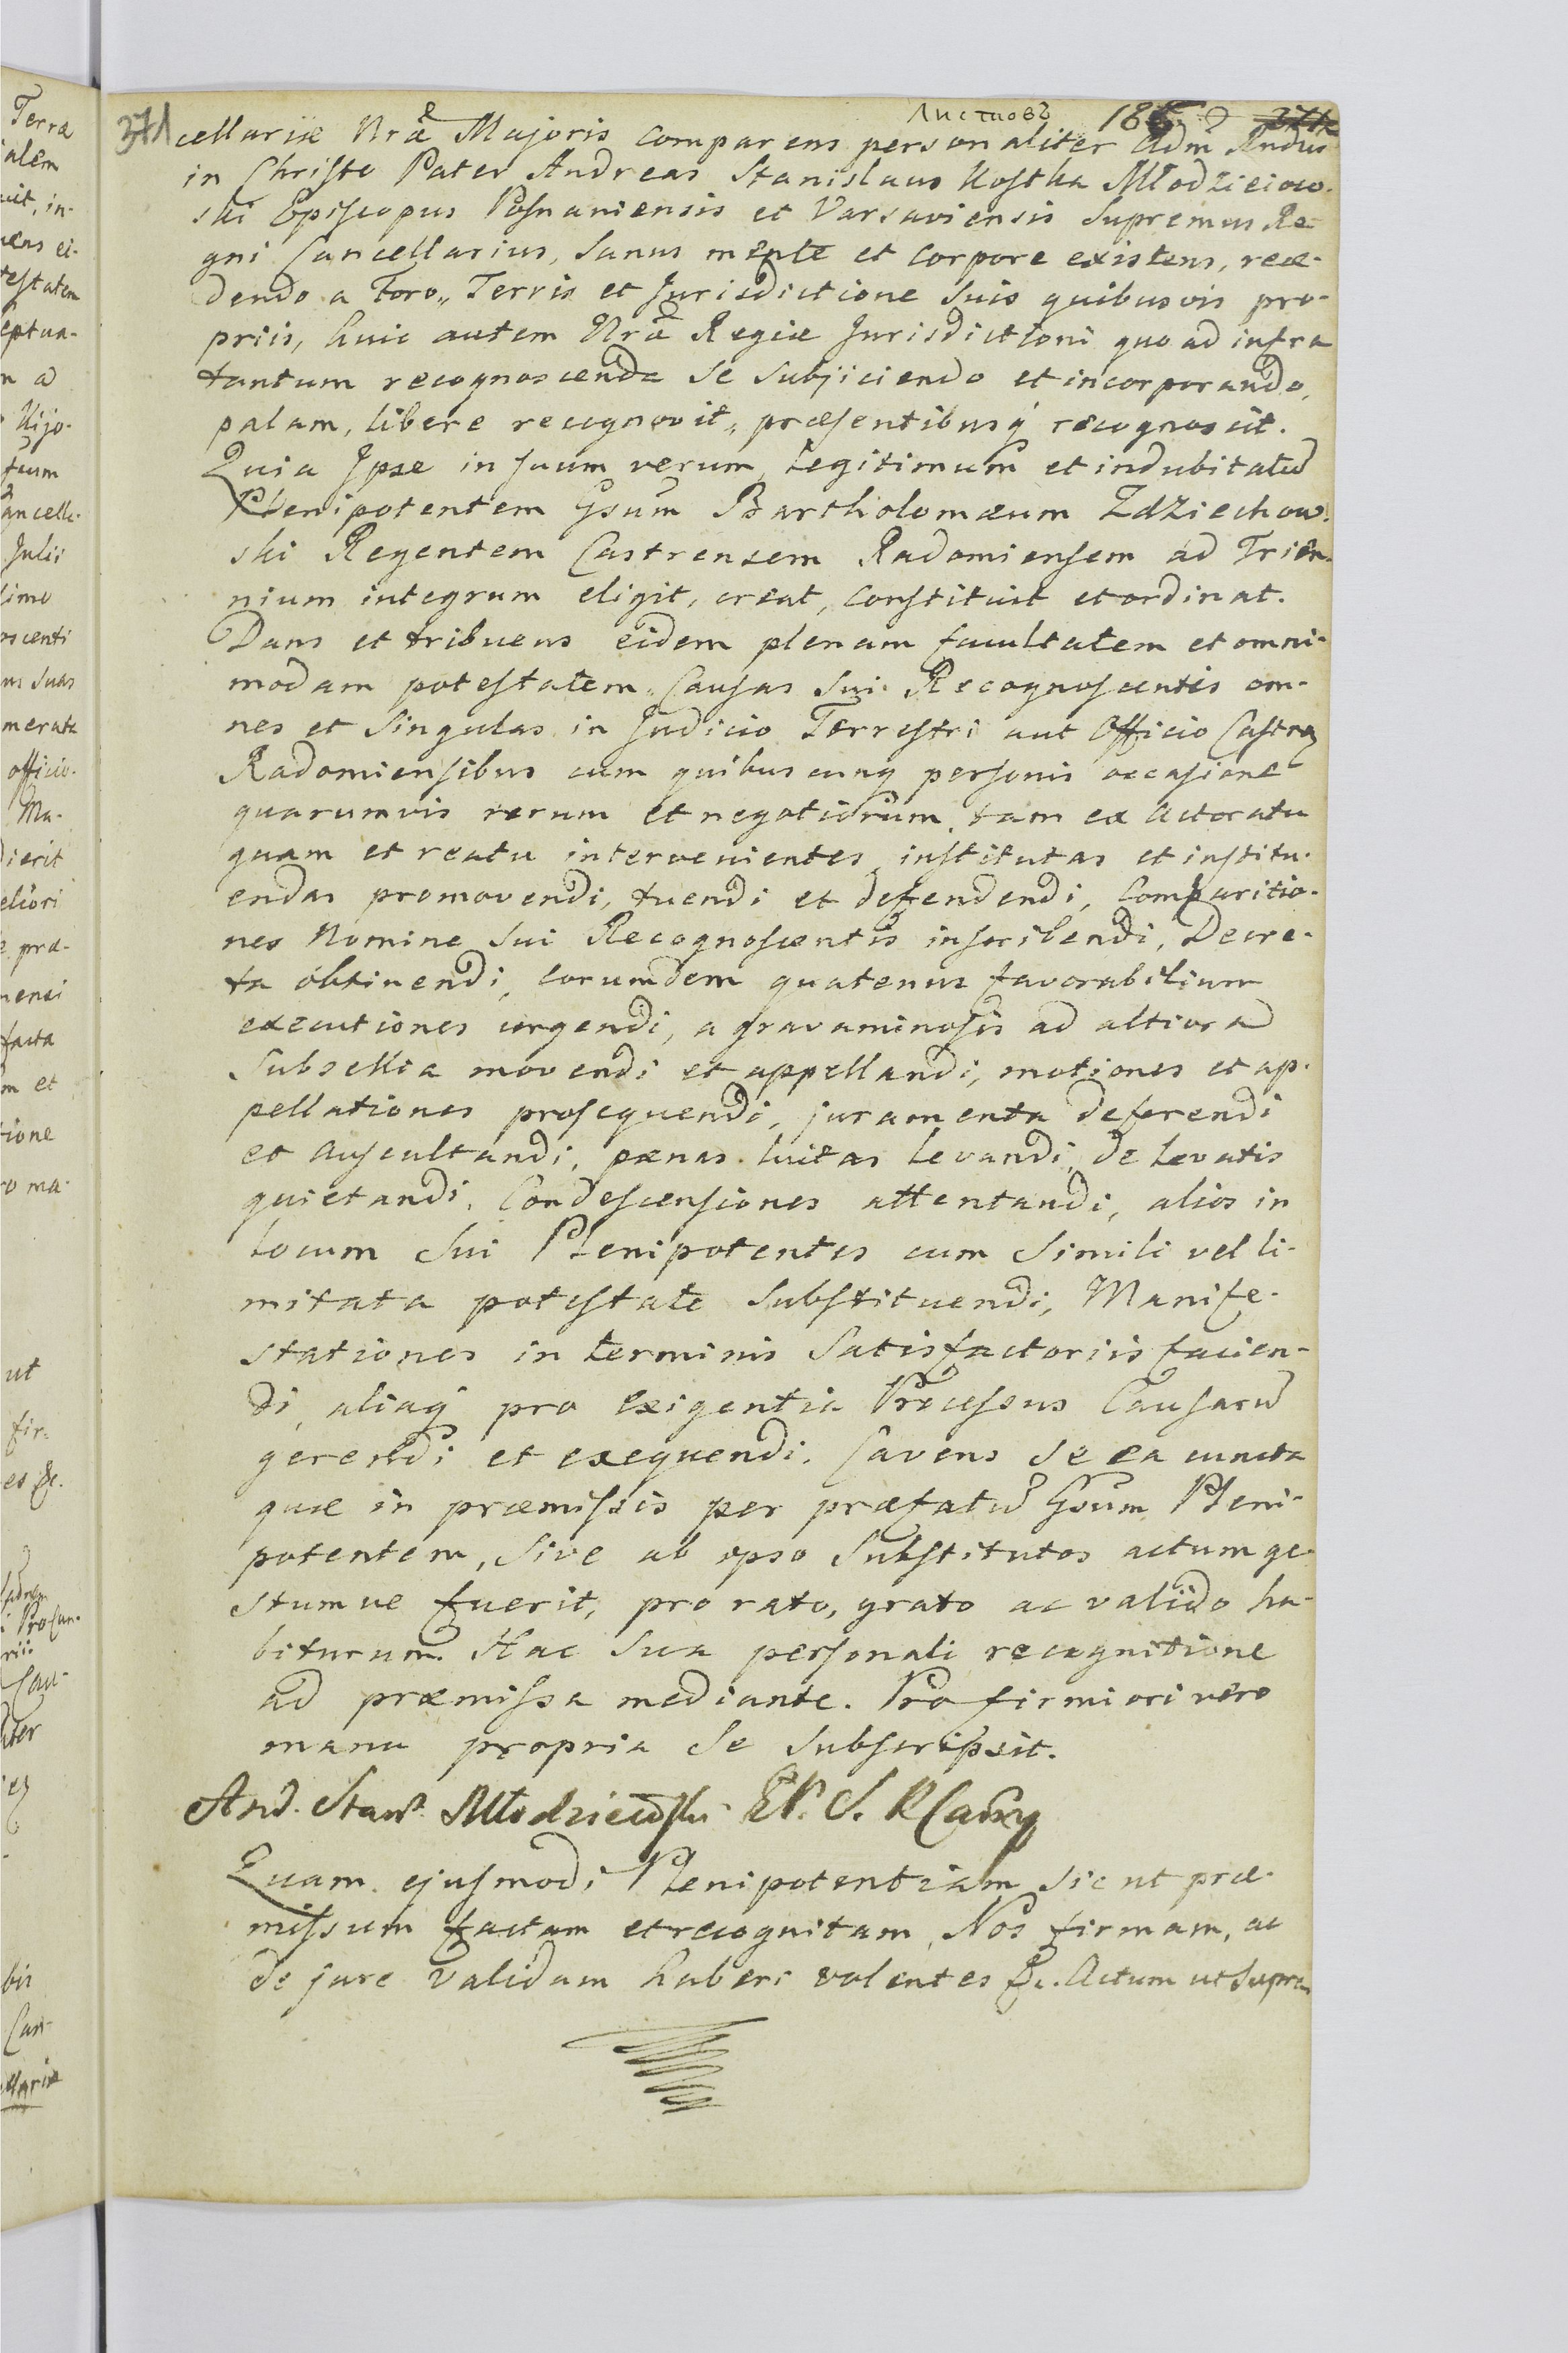 371 Листовъ 186 371
cellariæ Nræ Majoris comparens personaliter Adm Rndus
in Christo Pater Andreas Stanislaus Kostka Młodzieiow-
ski Episcopus Posnaniensis et Varsaviensis Supremus Re-
gni Cancellarius, Sanus mente et Corpore existens, rece-
dendo a Foro, Terris et Jurisdictione Suis quibusvis pro-
priis, huic autem Nræ Regiæ Jurisdictioni quo ad infra
tantum recognoscenda Se Subjiciendo et incorporando,
palam, libere recognovit, præsentibusq recognoscit.
Quia Ipse in suum verum, Legitimum et indubitatū
Plenipotentem Gsum Bartholomæum Zdziechow-
ski Regentem Castrensem Radomiensem ad Trien-
nium integrum eligit, creat, constituit et ordinat.
Dans et tribuens eidem plenam facultatem et omni-
modam potestatem, Causas Sui Recognoscentis om-
nes et Singulas in Judicio Terrestri aut Officio Castren
Radomiensibus cum quibuscunq personis occasione
quarumvis rerum et negotiorum, tam ex Actoratu
quam et reatu intervenientes, institutas et institu-
endas promovendi, tuendi et defendendi, Comparitio-
nes Nomine Sui Recognoscentis inscribendi, Decre-
ta obtinendi, eorumdem quatenus favorabilium
executiones urgendi, a gravaminosis ad altiora
Subsellia movendi et appellandi, motiones et ap-
pellationes prosequendi, juramenta deferendi
et Auscultandi, pœnas luitas Levandi, de Levatis
quietandi, Condescensiones attentandi, alios in
Locum Sui Plenipotentes cum Simili vel li-
mitata potestate Substituendi, Manife-
stationes in terminis Satisfactoriis facien-
di, aliaq pro exigentia Processus Causarū
gerendi et exequendi. Cavens Se ea cuncta
quæ in præmissis per præfatū Gsum Pleni-
potentem, Sive ab ipso Substitutos actum ge-
stumve fuerit, pro rato, grato ac valido ha-
biturum. Hac Sua personali recognitione
ad præmissa mediante. Pro firmiori vero
manu propria Se Subscripsit.
And. Stan. Młodzieiowski EP. S. R Canry
Quam ejusmodi Plenipotentiam Sic ut præ-
missum factam et recognitam, Nos firmam, ac
de jure Validam haberi volentes &c. Actum ut Supra